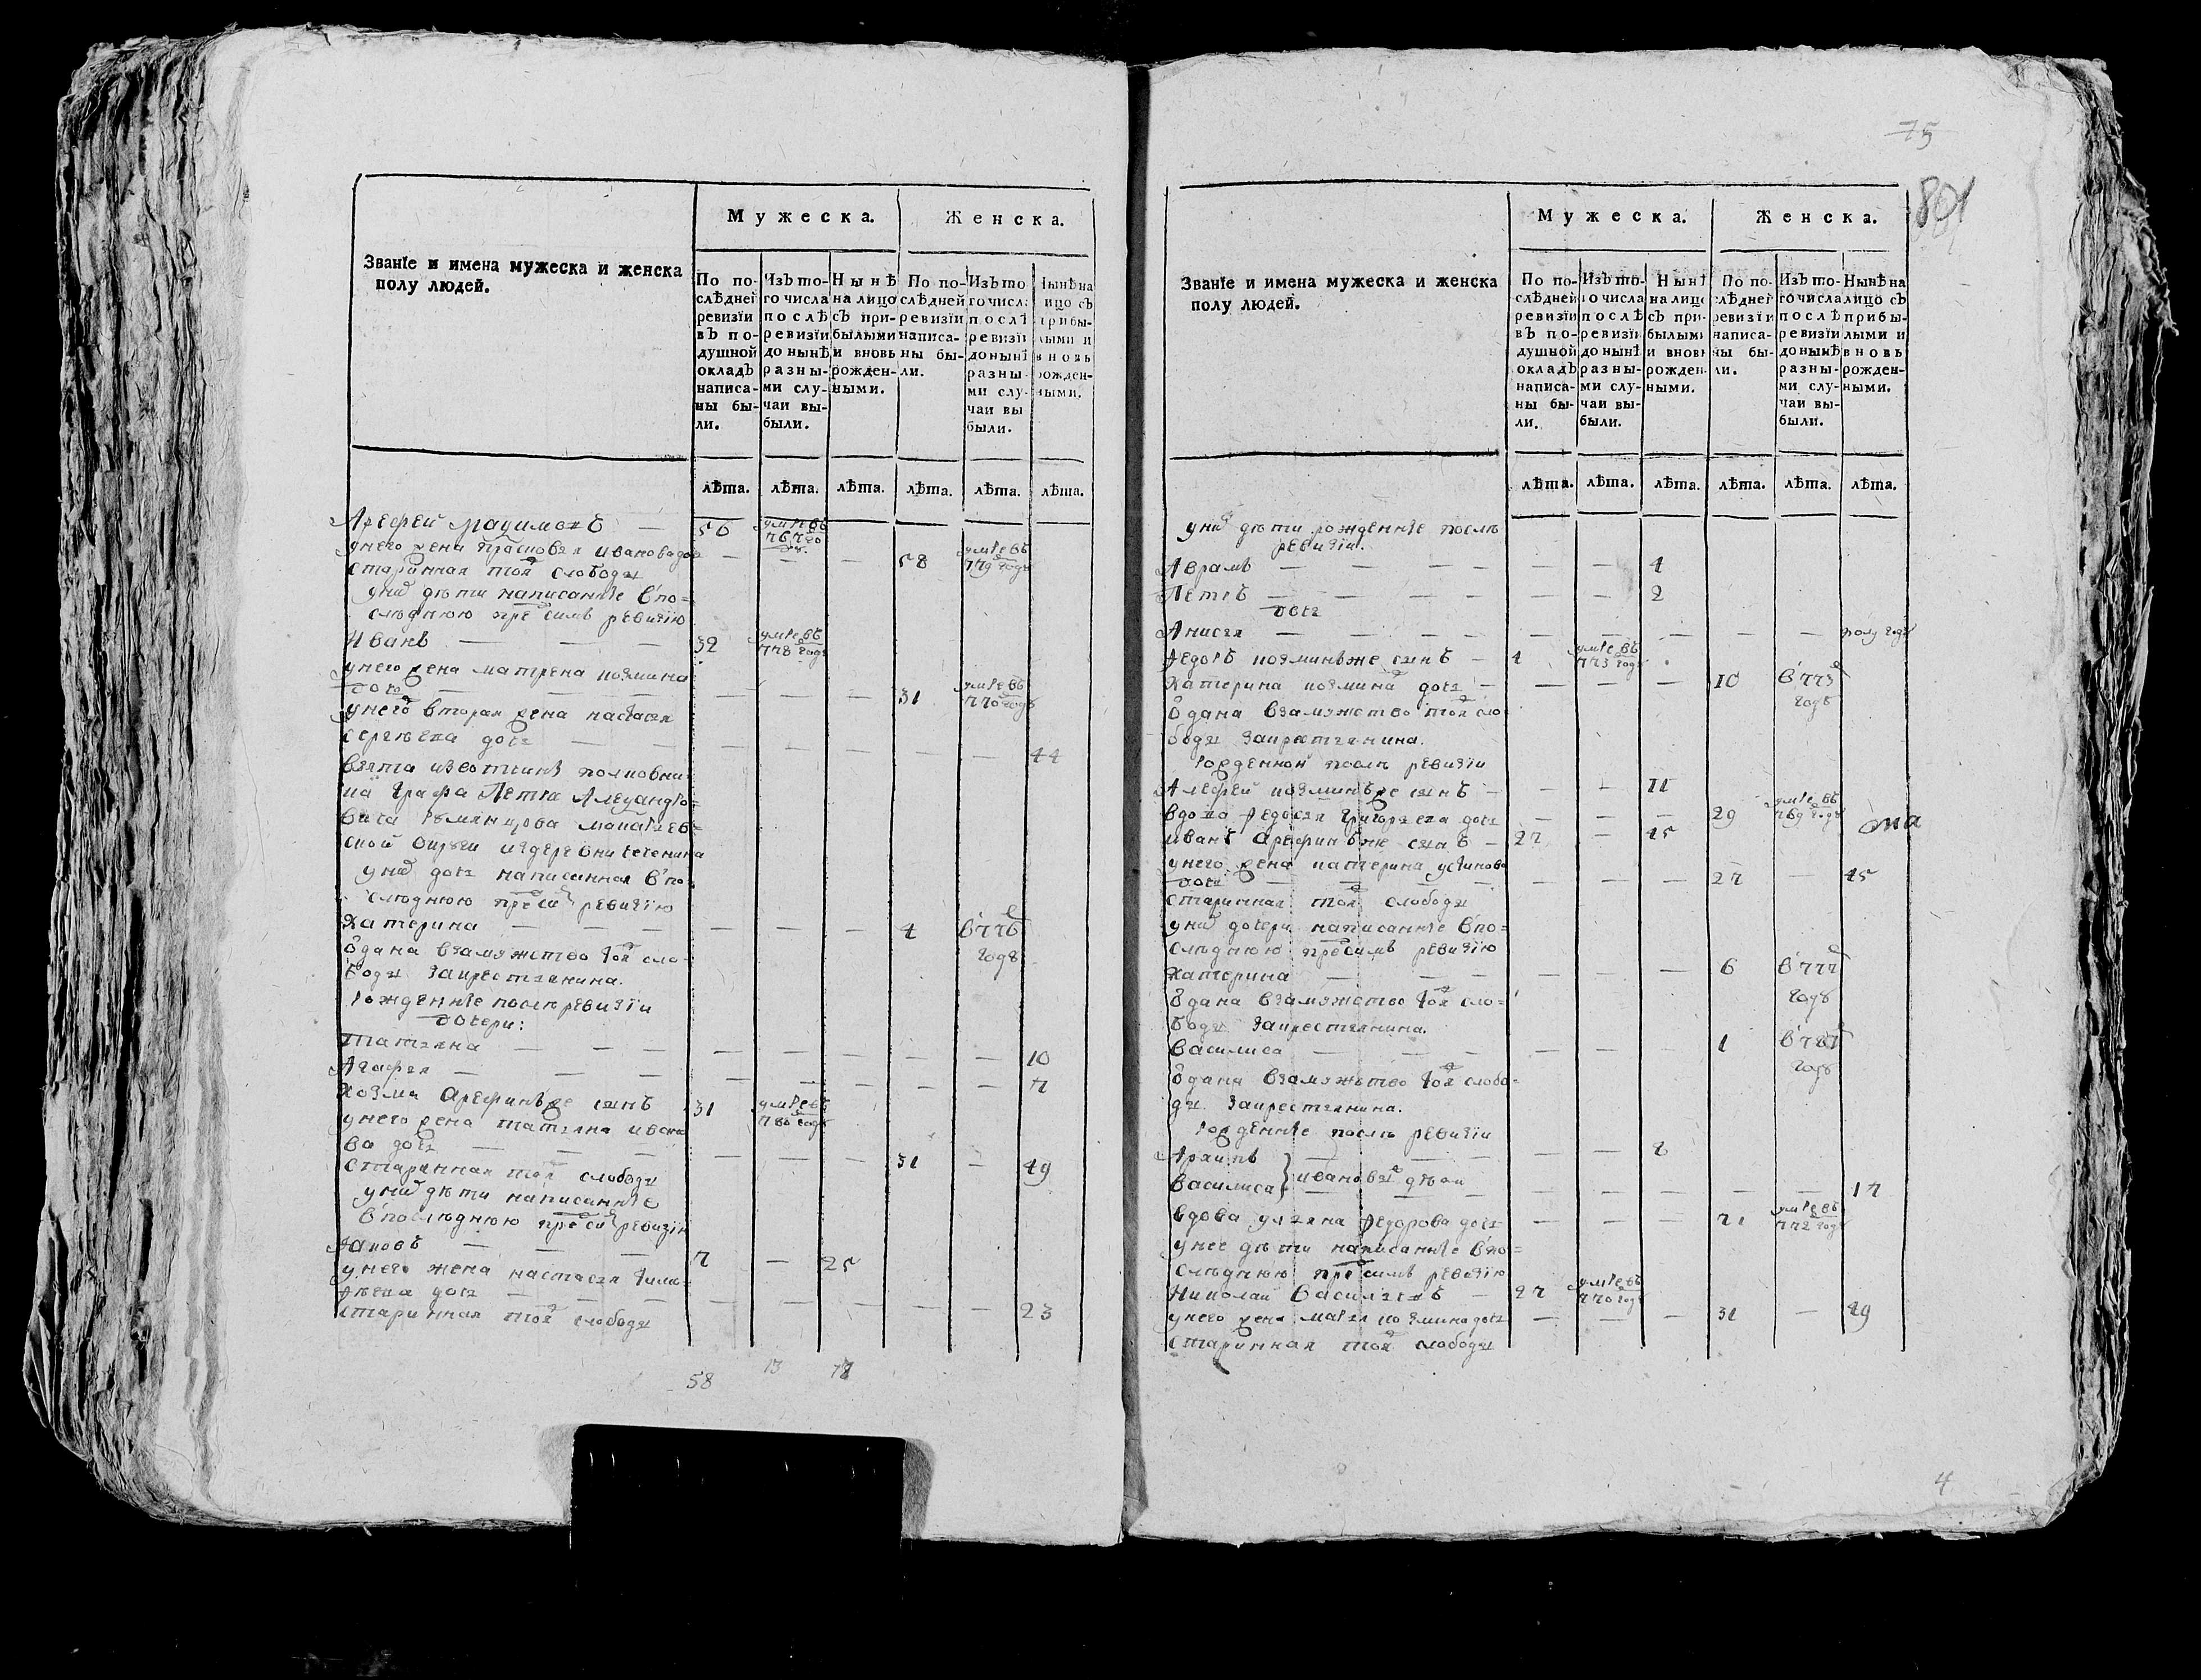 75
801
Званїе и имена мужеска и женска
полу людей.
Мужеска.
Женска.
По по-
слѣдней
ревизїи
въ по-
душной
окладъ
написа-
ны бы-
ли.
Изъ то-
го числа
послѣ
ревизїи
до нынѣ
разны-
ми слу-
чаи вы-
были.
Нынѣ
на лицо
съ при-
былыми
и вновь
рожден-
ными.
По по-
слѣдней
ревизїи
написа-
ны бы-
ли.
Изъ то
го числа
послѣ
ревизїи
до нынѣ
разны-
ми слу-
чаи вы
были.
Нынѣ на
лицо съ
прибы-
лыми и
вновь
рожден-
ными.
лѣта. лѣта. лѣта. лѣта. лѣта. лѣта.
Арефей Мазимовъ — 56 умре въ 767 го
у него жена Прасковья Иванова доч — — — 58 умре въ 779 годѣ
старинная той слободы
у них дѣти написанные в по=
слѣднюю пред сим ревизїю
Иванъ — — — 32 умре въ 778 годѣ
у него жена Матрена козмина
дочь — — — — — — 31 умре въ 770 годѣ
у него вторая жена Настасья
Сергѣева дочь — — — — — — — — 44
взята из вотчины полковни
ка графа Петра Александро=
вича румянцова
ской округи из деревни чеченина
у них дочь написанная в по
слѣднюю пред сим ревизїю
Катерина — — — — — — 4 в 776 годѣ
отдана в замужство той сло
боды за крестьянина.
рожденные после ревизїи
дочери:
Татьяна — — — — — — — — 10
Агафья — — — — — — — — 7
Козма Арефинъ же сынъ 31 умре въ 780 годѣ
у него жена татьяна ивано
ва дочь — — — — — — 31 — 49
старинная той слободы
у них дѣти написанные
в последнюю пред сим ревизїю
Яковъ — — — 7 — 25
у него жена настасья тимо=
фѣева дочь — — — — — — — — 23
старинная той слободы
58 13 18
Званїе и имена мужеска и женска
полу людей.
Мужеска.
Женска.
По по-
слѣдней
ревизїи
въ по-
душной
окладъ
написа-
ны бы-
ли.
Изъ то-
го числа
послѣ
ревизїи
до нынѣ
разны-
ми слу-
чаи вы-
были.
Нынѣ
на лицо
съ при-
былыми
и вновь
рожден-
ными.
По по-
слѣдней
ревизїи
написа-
ны бы-
ли.
Изъ то-
го числа
послѣ
ревизїи
до нынѣ
разны-
ми слу-
чаи вы-
были.
Нынѣ на
лицо съ
прибы-
лыми и
вновь
рожден-
ными.
лѣта. лѣта. лѣта. лѣта. лѣта. лѣта.
у них дѣти рожденные послѣ
ревизїи.
Аврамъ — — — — — — 4
Петръ — — — — — — 2
дочь
Анисья — — — — — — — — — полу годѣ
Федоръ козминъ же сынъ — 4 умре въ 773 годѣ
Катерина козмина дочь — — — — 10 в 773 годѣ
отдана в замужство той сло
боды за крестьянина.
рожденной послѣ ревизїи
Алефей козминъ же сынъ — — — 11
вдова федосья григорьева дочь — — — 29 умре въ 769 годѣ
Иванъ Арефинъ же сынъ — 27 — 45
у него жена катерина устинова
дочь — — — — — — 27 — 45
старинная той слободы
у них дочери написанные в по=
слѣднюю пред симъ ревизїю
Катерина — — — — — — 6 в 777 годѣ
отдана в замужство той сло=
боды за крестьянина.
Василиса — — — — — — 1 в 781 годѣ
отдана в замужство той слобо=
ды за крестьянина.
рожденные послѣ ревизїи
Архипъ — — — — — 8
Василиса } ивановы дѣти — — — — — 17
вдова ульяна федорова дочь — — — 71 умре въ 772 годѣ
у нее дѣти написанные в по=
слѣднюю пред симъ ревизїю
Николай Васильевъ — 27 умре въ 770 годѣ
у него жена марья козмина дочь — — — 31 — 49
старинная той слободы
4